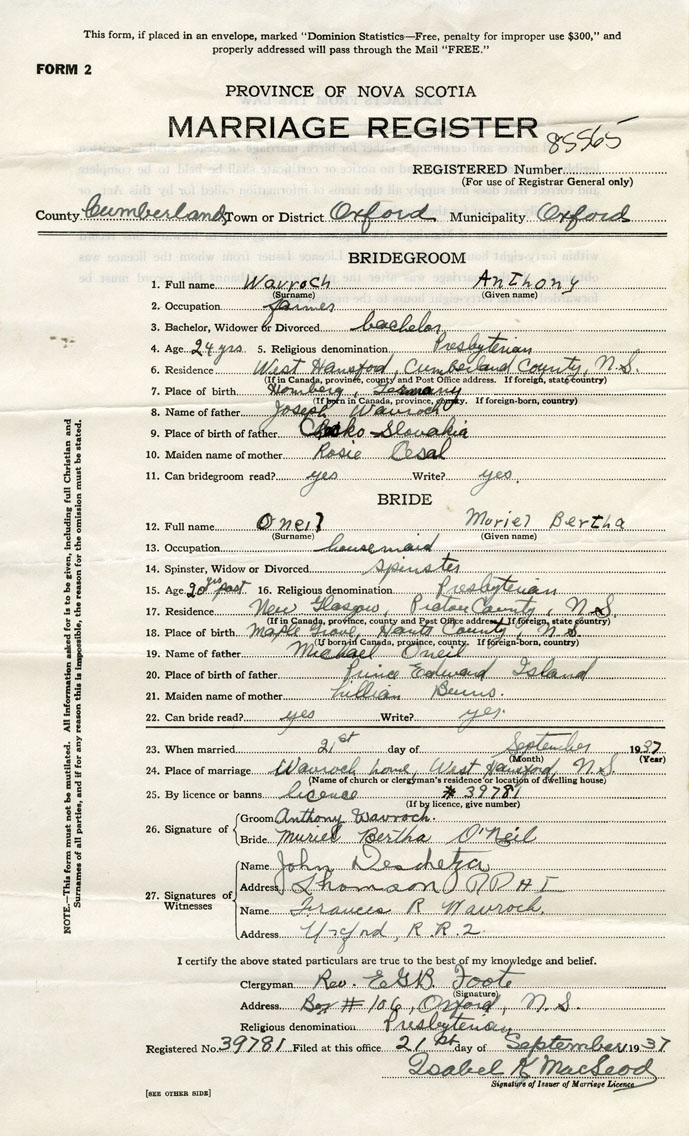 This form, if placed in an envelope, marked "Dominion Statistics—Free, penalty for improper use $300," and
properly addressed will pass through the Mail "FREE."
FORM 2
PROVINCE OF NOVA SCOTIA
MARRIAGE REGISTER
85565
REGISTERED Number
(For use of Registrar General only)
County Cumberland Town or District Oxford Municipality Oxford
BRIDEGROOM
1. Full name Wavroch Anthony
(Surname) (Given name)
2. Occupation farmer
3. Bachelor, Widower or Divorced bachelor
4. Age 24 yrs 5. Religious denomination Presbyterian
6. Residence West Hansford, Cumberland County, N.S.
(If in Canada, province, county and Post Office address. If foreign, state country)
7. Place of birth Homberg, Germany
(If born in Canada, province, county. If foreign-born, country)
8. Name of father Joseph Wavroch
9. Place of birth of father Slovakia
10. Maiden name of mother Rosie Cesal
11. Can bridegroom read? yes Write? yes.
BRIDE
12. Full name Oneil Muriel Bertha
(Surname) (Given name)
13. Occupation housemaid
14. Spinster, Widow or Divorced spinster
15. Age 20 yrs past 16. Religious denomination Presbyterian
17. Residence New Glasgow, Pictou County, N.S.
(If in Canada, province, county and Post Office address. If foreign, state country)
18. Place of birth Maple Grove, Hants County, N.S.
(If born in Canada, province, county. If foreign-born, country)
19. Name of father Michael Oneil
20. Place of birth of father Prince Edward Island
21. Maiden name of mother Lillian Burns.
22. Can bride read? yes Write? yes.
23. When married 21st day of September 1937
(Month) (Year)
24. Place of marriage Wavroch home, West Hansford, N.S.
(Name of church or clergyman's residence or location of dwelling house)
25. By licence or banns licence # 39781
(If by licence, give number)
26. Signature of Groom Anthony Wavroch.
Bride Muriel Bertha O'Neil
27. Signatures of Witnesses
Name John
Address Thomson
Name Frances R Wavroch.
Address Oxford, R.R.2.
I certify the above stated particulars are true to the best of my knowledge and belief.
Clergyman Rev. E.G.B. Foote
(Signature)
Address Box # 106, Oxford, N.S.
Religious denomination Presbyterian
Registered No. 39781 Filed at this office 21st day of September 1937
Isabel K MacLeod
Signature of Issuer of Marriage Licence
[SEE OTHER SIDE]
NOTE.—This form must not be mutilated. All information asked for is to be given, including full Christian and
Surnames of all parties, and if for any reason this is impossible, the reason for the omission must be stated.